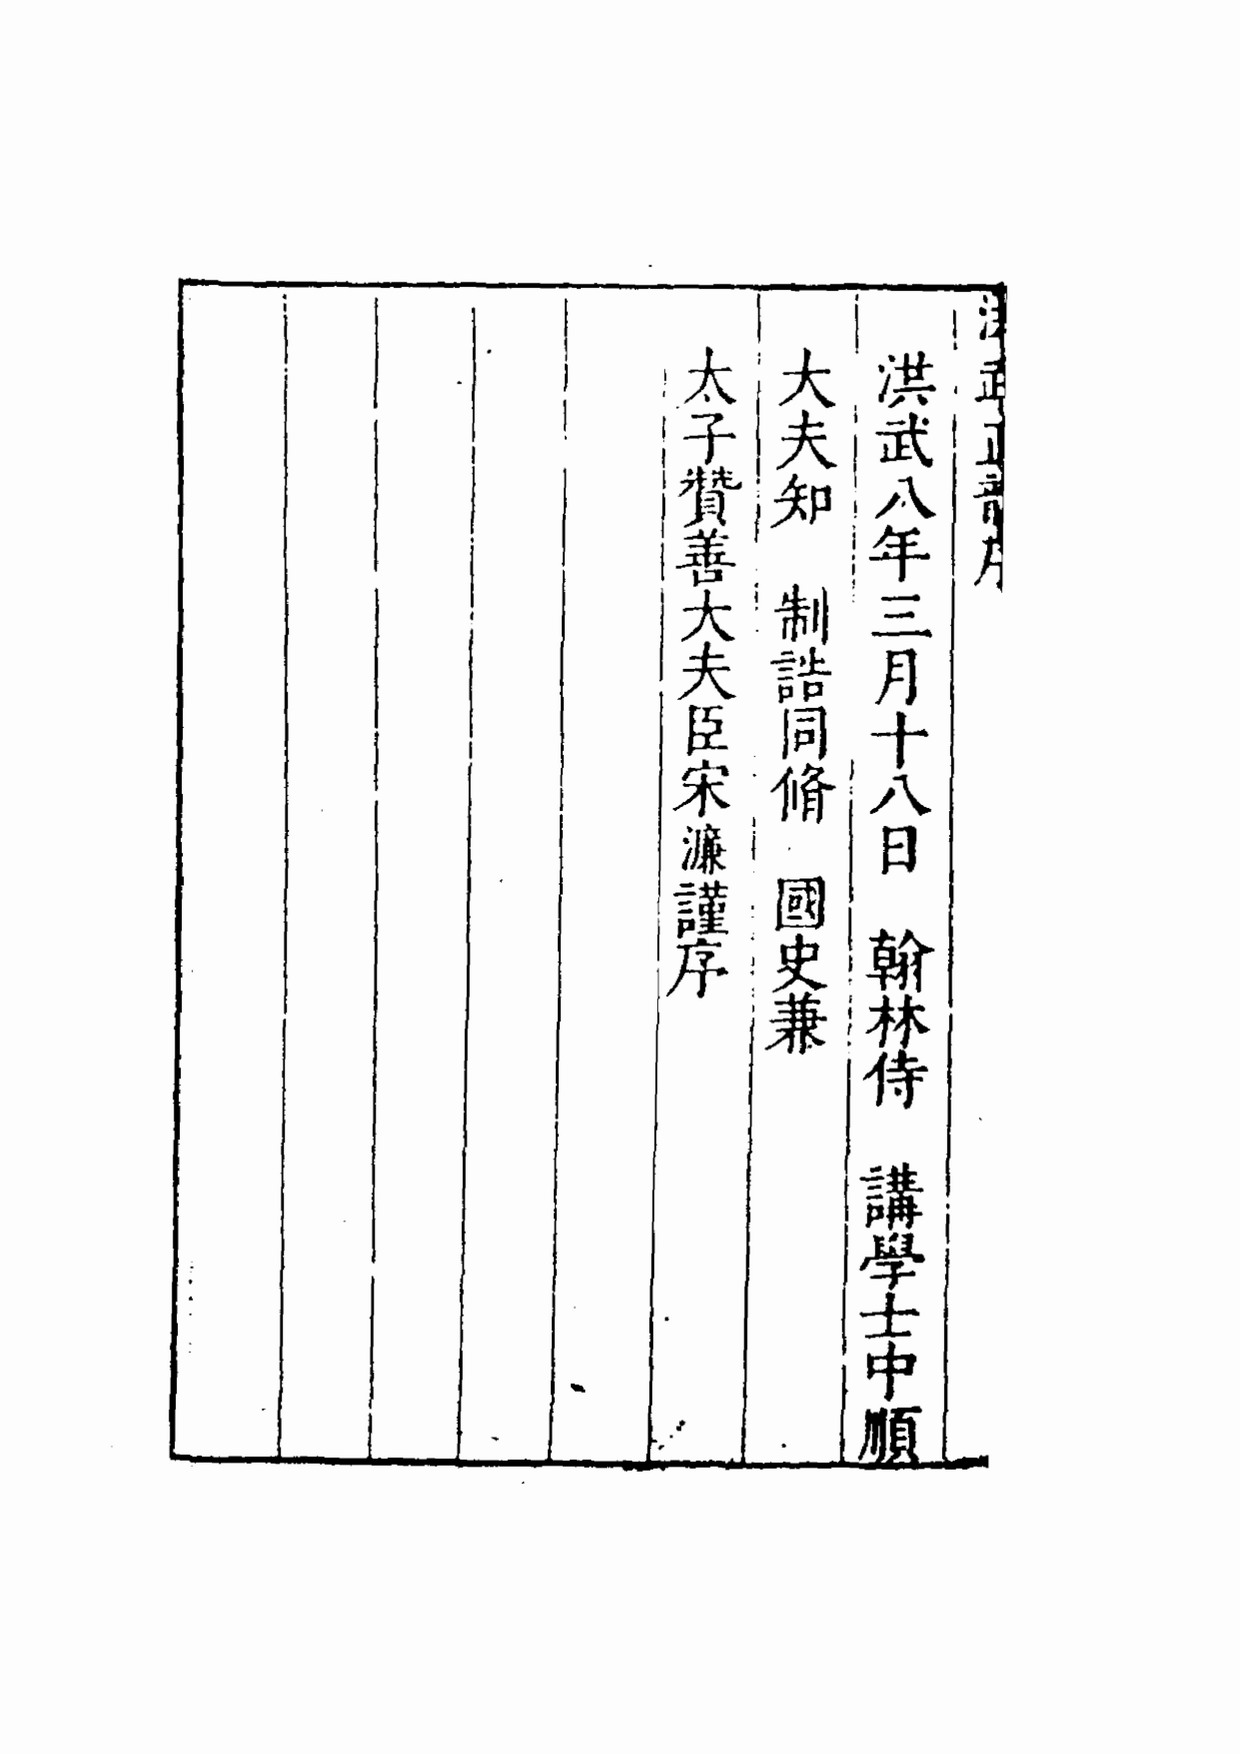 洪武正韻序
洪武八年三月十八日 翰林侍 講學士中順
大夫知 制誥同脩 國史兼
太子贊善大夫臣宋濂謹序